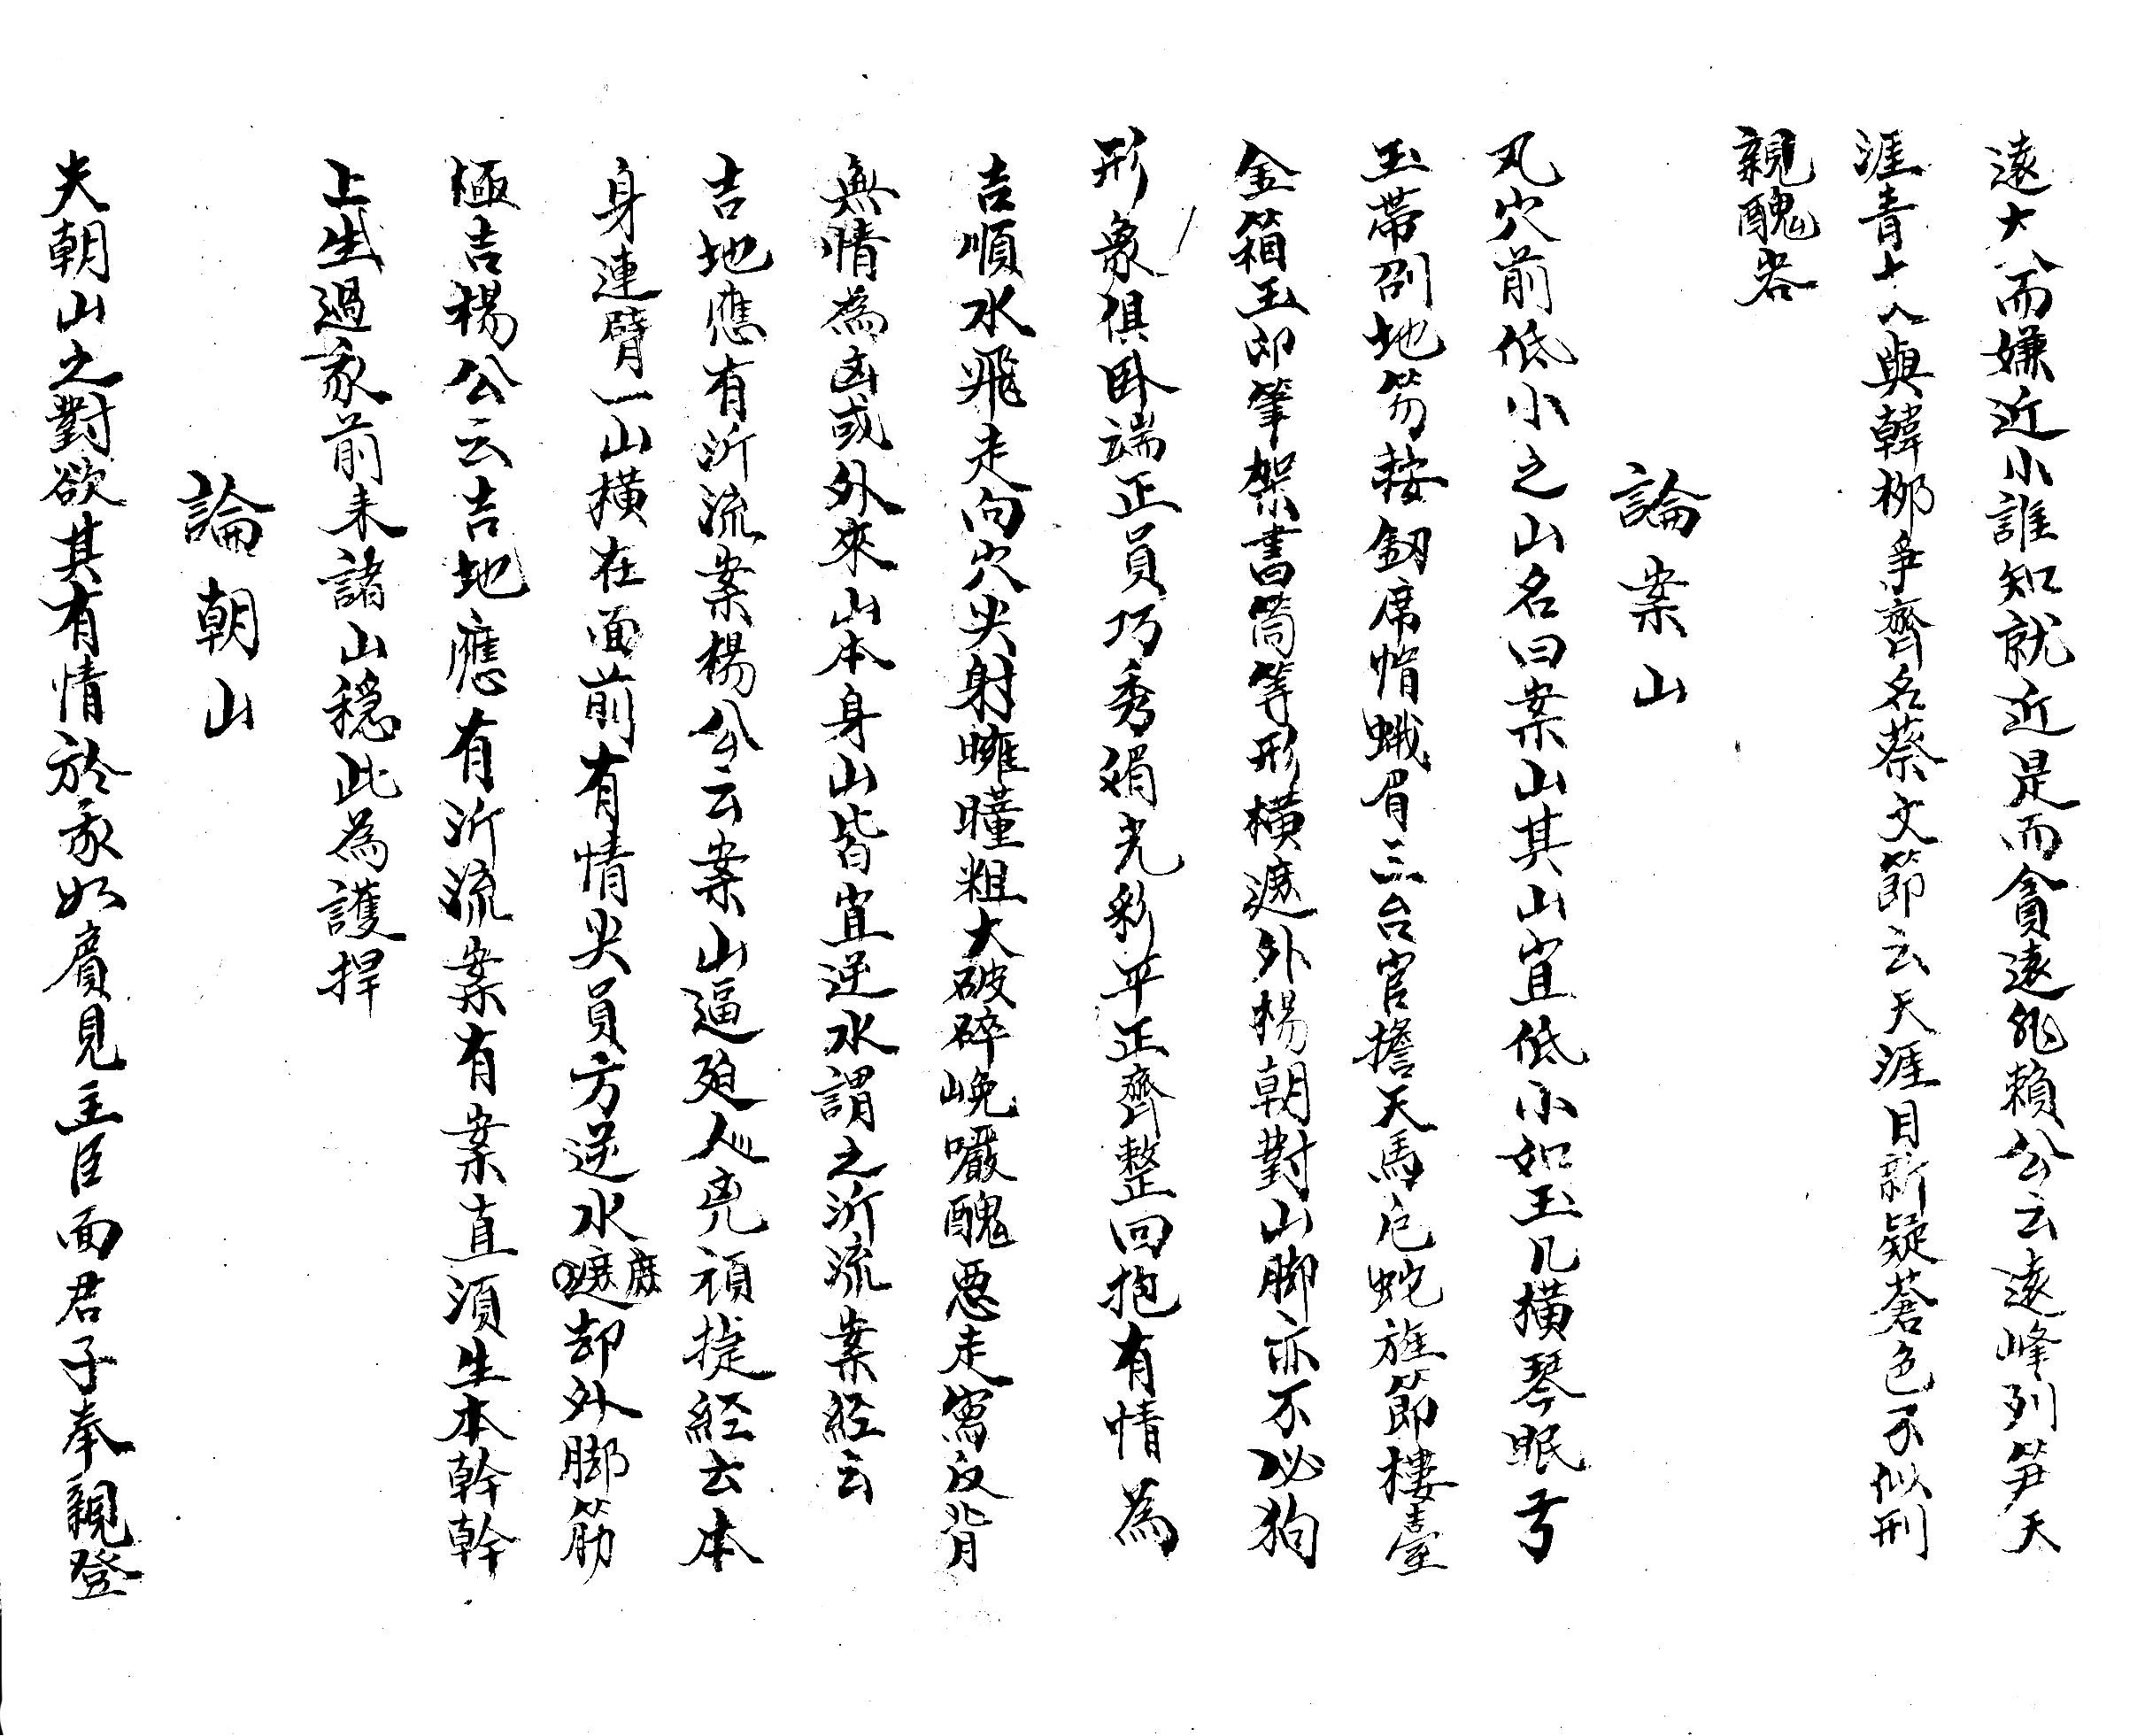 遠大而嫌近小誰知就近是而貪遠非賴公云遠峰列笋天
涯青十八與韓栁爭齊名蔡文節云天涯目新疑蒼色不似刑
親醜容
論案山
凡穴前低小之山名曰案山其山宜低小如玉几横琴眠弓
玉帶列地笏按釼席帽蛾眉三台官擔天馬龜蛇旌節樓臺
金箱玉印筆架書筒等形横遮外楊朝對山脚亦不必狗
形象俱卧端正員巧秀媚光彩平正齊整回抱有情為
吉順水飛走向穴尖射臃腫粗大破碎巉巖醜惡走竄反背
無情為凶或外來山本身山皆宜逆水謂之沂流案経云
吉地應有沂流案楊公云案山逼廹人兇頑㨗経云本
身連臂一山横在面前有情尖員方逆水遮却外脚筋
極吉楊公云吉地應有沂流案有案直須生本幹幹
上生過我前来諸山穏此為護捍
論朝山
夫朝山之對欲其有情於我如賓見主臣面君子奉親登